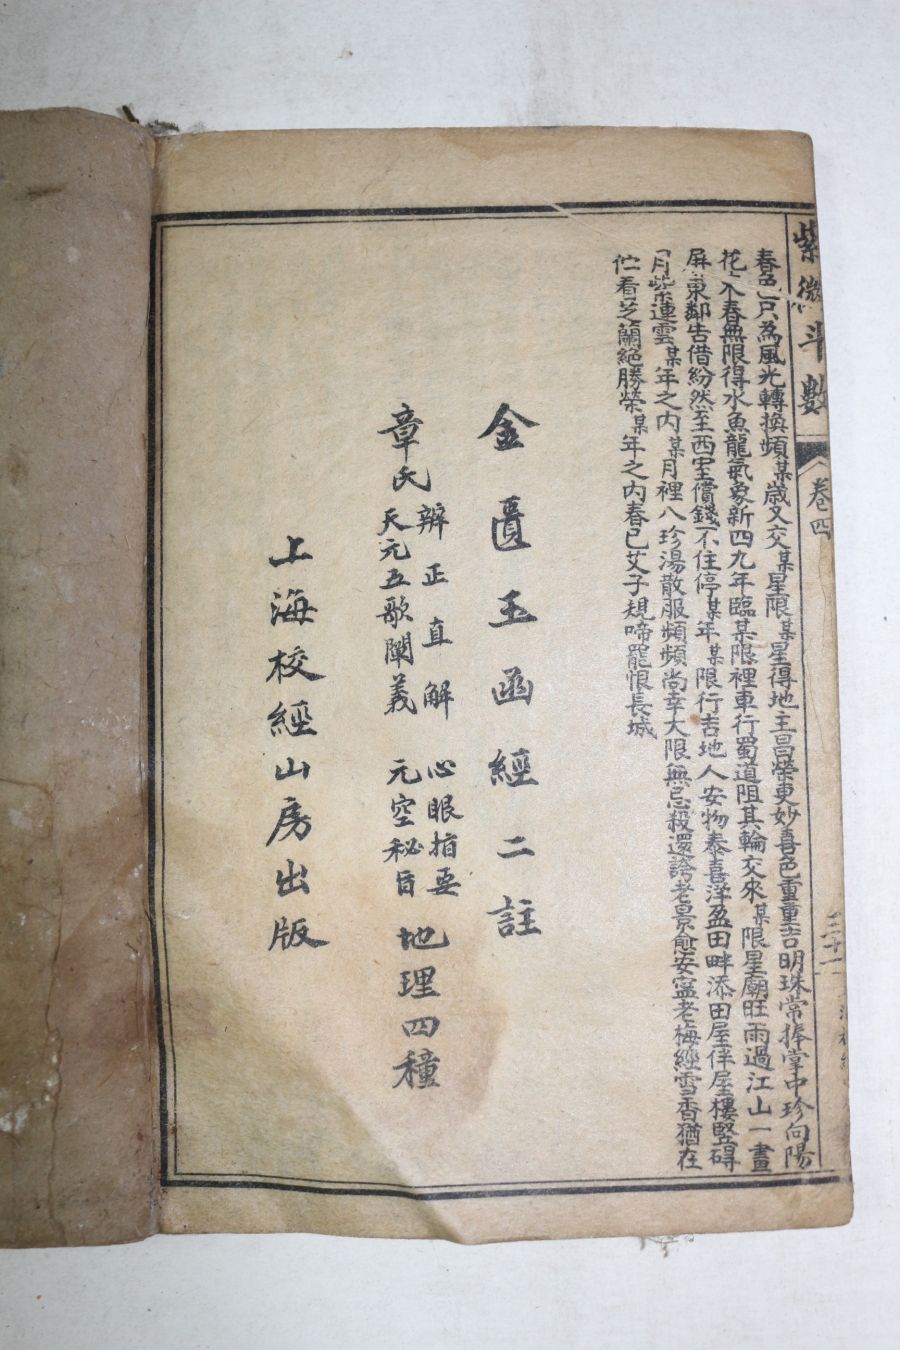 紫微斗數
卷四
三十一
春色只為風光轉換頻某歲又交某星限某星得地主昌榮更妙喜色重重吉明珠常捧掌中珍向陽
花木春無限得水魚龍氣象新四九年臨某限裡車行蜀道阻其輪交來某限星廟旺雨過江山一畫
屏東鄰告借紛然至西室償錢不住停某年某限行吉地人安物泰喜洋盈田畔添田屋伴屋樓豎碍
月柴連雲某年之內某月裡八珍湯散服頻頻尚幸大限無忌殺還誇老景愈安寧老梅經雪香猶在
伫看芝蘭絕勝榮某年之內春已艾子規啼罷恨長城
金匱玉函經二註
章氏
辨正直解 心眼指要
天元五歌闡義 元空秘旨
地理四種
上海校經山房出版